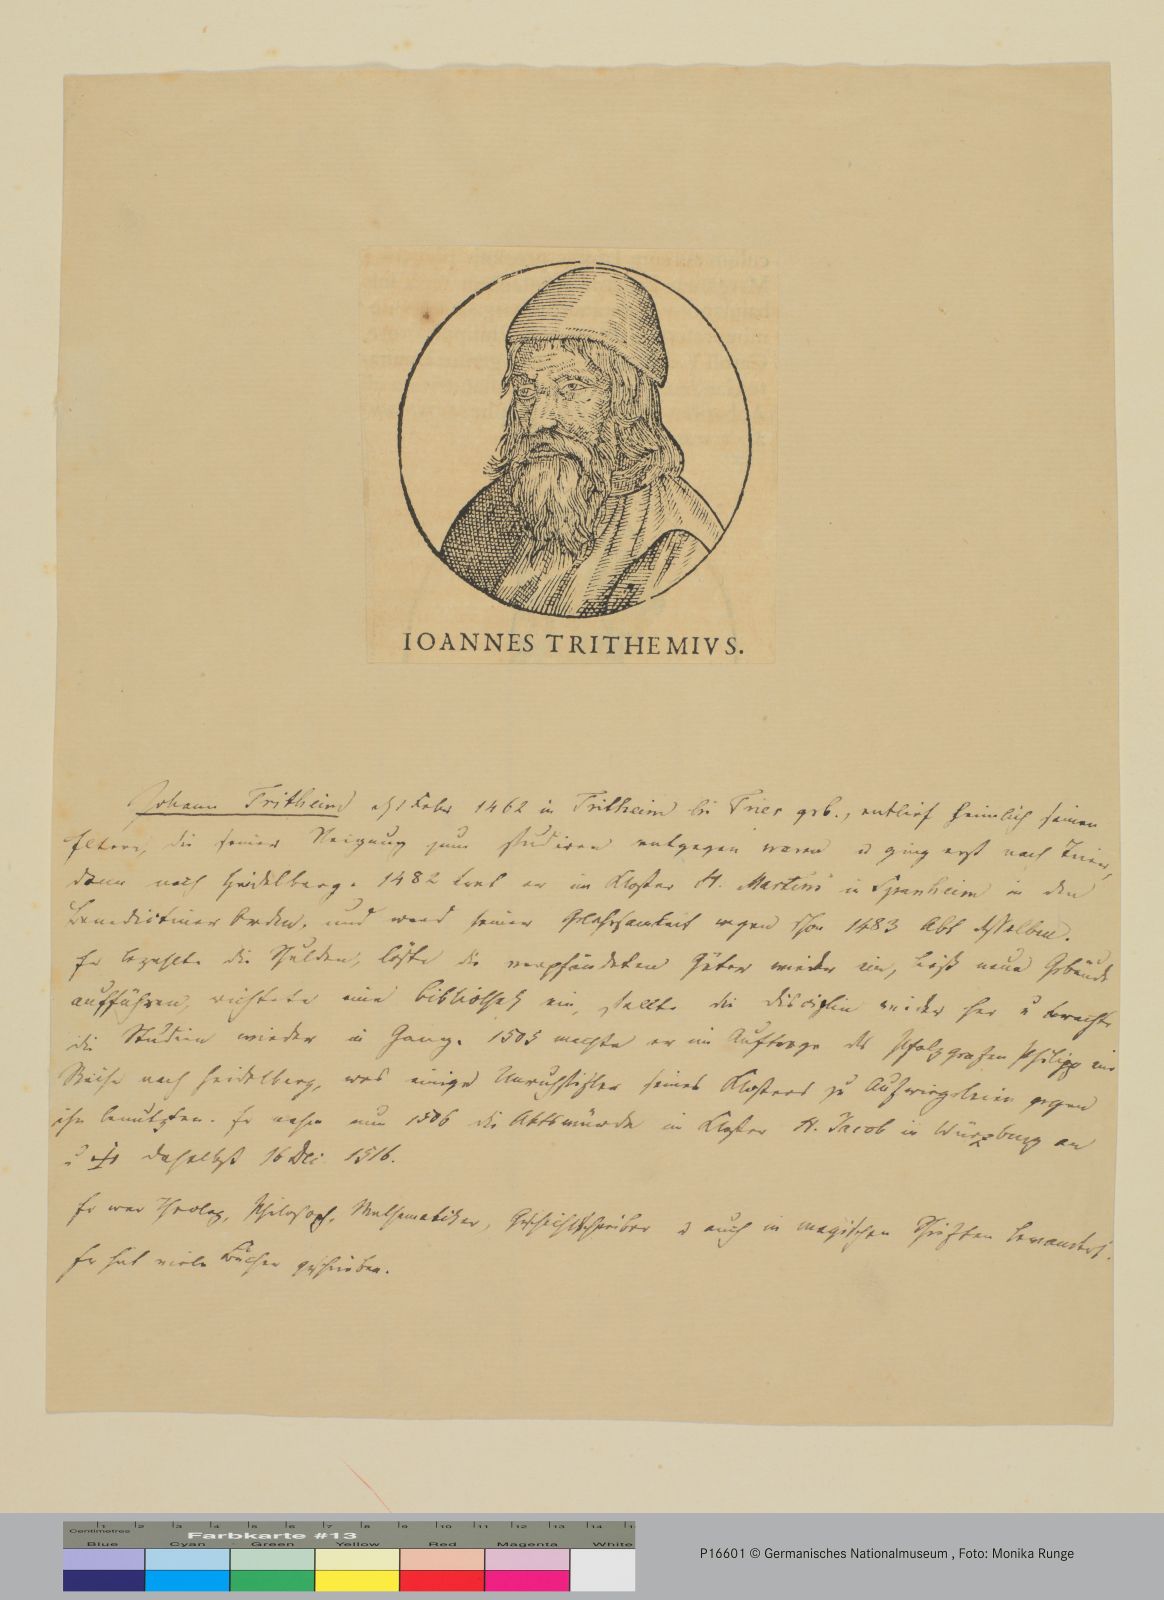 IOANNES TRITHEMIVS.
Johann Tritheim d 1 Febr 1462 in Tritheim bei Trier geb., entlief heimlich seinen
Eltern, die seiner Neigung zum studiren entgegen waren u ging erst nach Trier,
dann nach Heidelberg. 1482 trat er im Kloster St. Martins in Spanheim in den
Benedictiner Orden, und ward seiner Gelehrsamkeit wegen schon 1483 Abt desselben.
Er bezahlte die Schulden, löste die verpfändeten Güter wieder ein, ließ neue Gebäude
aufführen, richtete eine Bibliothek ein, stellte die Disciplin wieder her u brachte
die Studien wieder in Gang. 1505 machte er im Auftrage des Pfalzgrafen Philipp eine
Reise nach Heidelberg, was einige Unruhstifter seines Klosters zu Aufwiegeleien gegen
ihn benützten. Er nahm nun 1506 die Abtswürde im Kloster St. Jacob in Würzburg an
u daselbst 16 Dec. 1516.
Er war Theolog, Philosoph, Mathematiker, Geschichtschreiber u auch in magischen Schriften bewandert.
Er hat viele Bücher geschrieben.
Centimetres 1 2 3 4 5 6 7 8 9 10 11 12 13 14
Farbkarte #13
Blue Cyan Green Yellow Red Magenta White
P16601 © Germanisches Nationalmuseum , Foto: Monika Runge